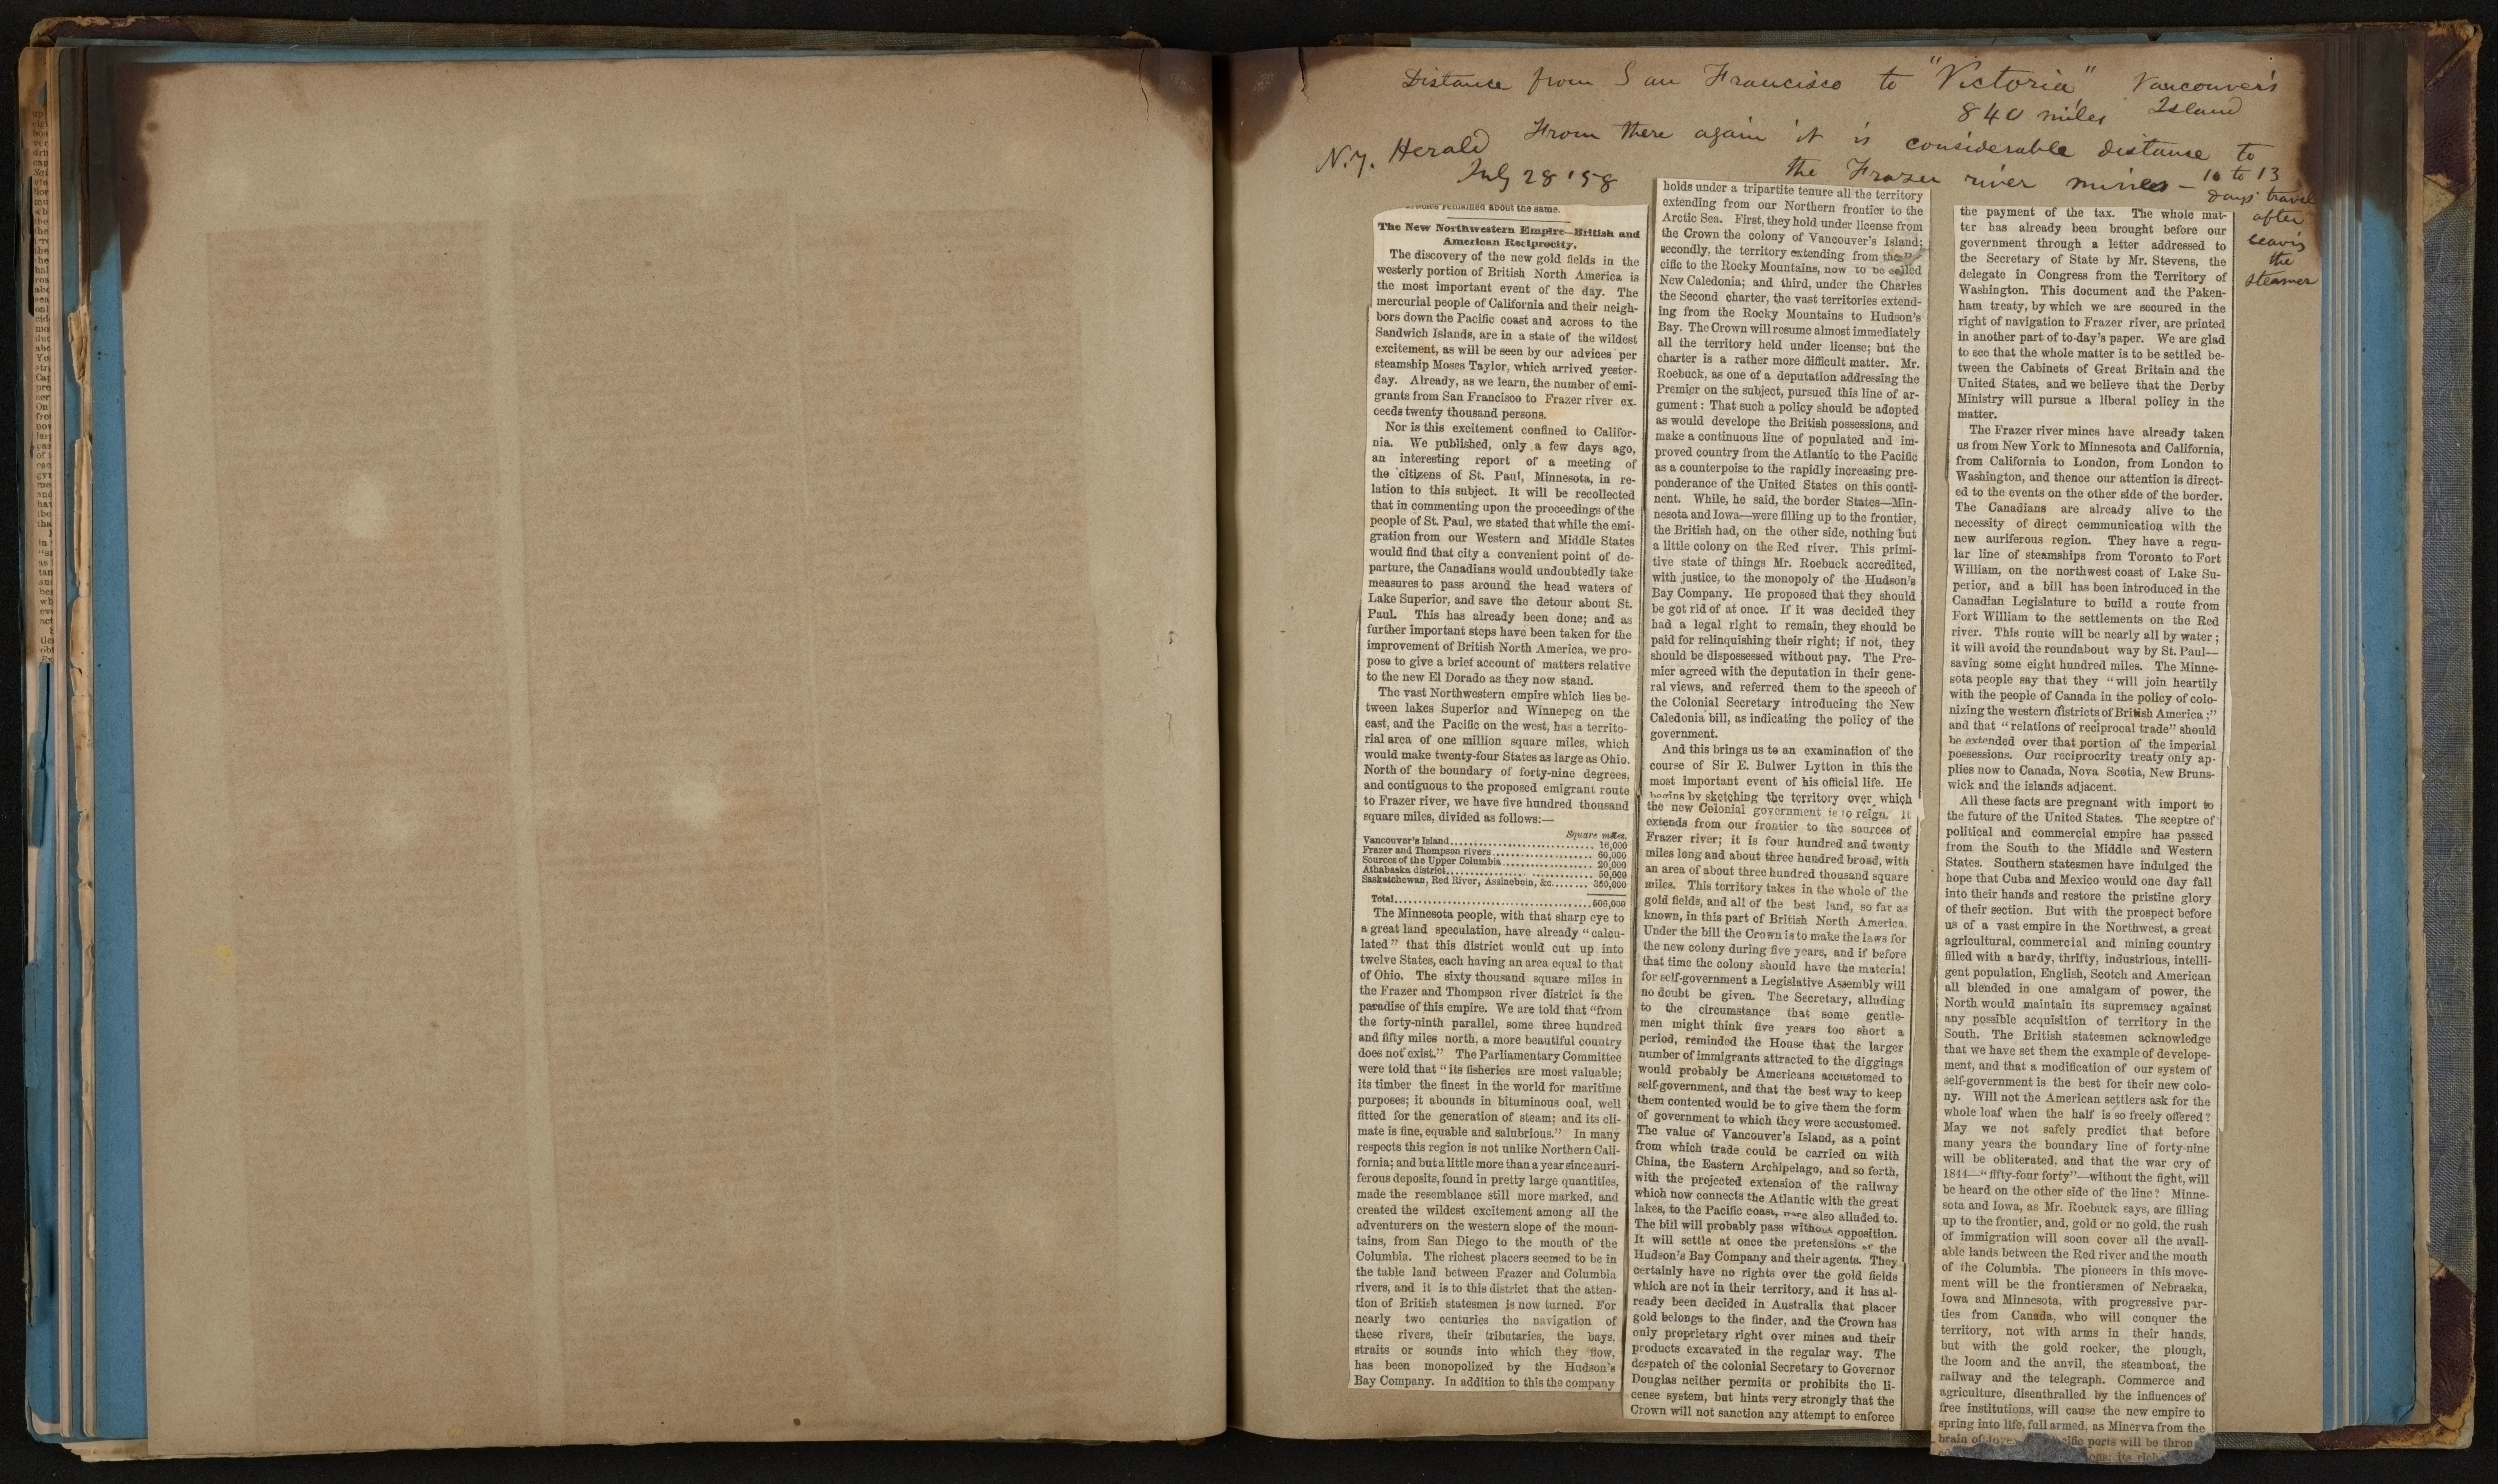 Distance from San Francisco to "Victoria" Vancouver's
Island
840 miles
From there again it is considerable distance to
the Frazer river mines — 10 to 13
days' travel
after
leaving
the
steamer
N.Y. Herald
July 28 '58
articles remained about the same.
The New Northwestern Empire—British and
American Reciprocity.
The discovery of the new gold fields in the
westerly portion of British North America is
the most important event of the day. The
mercurial people of California and their neigh-
bors down the Pacific coast and across to the
Sandwich Islands, are in a state of the wildest
excitement, as will be seen by our advices per
steamship Moses Taylor, which arrived yester-
day. Already, as we learn, the number of emi-
grants from San Francisco to Frazer river ex-
ceeds twenty thousand persons.
Nor is this excitement confined to Califor-
nia. We published, only a few days ago,
an interesting report of a meeting of
the citizens of St. Paul, Minnesota, in re-
lation to this subject. It will be recollected
that in commenting upon the proceedings of the
people of St. Paul, we stated that while the emi-
gration from our Western and Middle States
would find that city a convenient point of de-
parture, the Canadians would undoubtedly take
measures to pass around the head waters of
Lake Superior, and save the detour about St.
Paul. This has already been done; and as
further important steps have been taken for the
improvement of British North America, we pro-
pose to give a brief account of matters relative
to the new El Dorado as they now stand.
The vast Northwestern empire which lies be-
tween lakes Superior and Winnepeg on the
east, and the Pacific on the west, has a territo-
rial area of one million square miles, which
would make twenty-four States as large as Ohio.
North of the boundary of forty-nine degrees,
and contiguous to the proposed emigrant route
to Frazer river, we have five hundred thousand
square miles, divided as follows:—
Square miles.
Vancouver's Island........ 16,000
Frazer and Thompson rivers........ 60,000
Sources of the Upper Columbia........ 20,000
Athabaska district........ 50,000
Saskatchewan, Red River, Assineboin, &c........ 360,000
Total........506,000
The Minnesota people, with that sharp eye to
a great land speculation, have already "calcu-
lated" that this district would cut up into
twelve States, each having an area equal to that
of Ohio. The sixty thousand square miles in
the Frazer and Thompson river district is the
paradise of this empire. We are told that "from
the forty-ninth parallel, some three hundred
and fifty miles north, a more beautiful country
does not exist." The Parliamentary Committee
were told that "its fisheries are most valuable;
its timber the finest in the world for maritime
purposes; it abounds in bituminous coal, well
fitted for the generation of steam; and its cli-
mate is fine, equable and salubrious." In many
respects this region is not unlike Northern Cali-
fornia; and but a little more than a year since auri-
ferous deposits, found in pretty large quantities,
made the resemblance still more marked, and
created the wildest excitement among all the
adventurers on the western slope of the moun-
tains, from San Diego to the mouth of the
Columbia. The richest placers seemed to be in
the table land between Frazer and Columbia
rivers, and it is to this district that the atten-
tion of British statesmen is now turned. For
nearly two centuries the navigation of
these rivers, their tributaries, the bays,
straits or sounds into which they flow,
has been monopolized by the Hudson's
Bay Company. In addition to this the company
holds under a tripartite tenure all the territory
extending from our Northern frontier to the
Arctic Sea. First, they hold under license from
the Crown the colony of Vancouver's Island;
secondly, the territory extending from the
cific to the Rocky Mountains, now to be called
New Caledonia; and third, under the Charles
the Second charter, the vast territories extend-
ing from the Rocky Mountains to Hudson's
Bay. The Crown will resume almost immediately
all the territory held under license; but the
charter is a rather more difficult matter. Mr.
Roebuck, as one of a deputation addressing the
Premier on the subject, pursued this line of ar-
gument: That such a policy should be adopted
as would develope the British possessions, and
make a continuous line of populated and im-
proved country from the Atlantic to the Pacific
as a counterpoise to the rapidly increasing pre-
ponderance of the United States on this conti-
nent. While, he said, the border States—Min-
nesota and Iowa—were filling up to the frontier,
the British had, on the other side, nothing but
a little colony on the Red river. This primi-
tive state of things Mr. Roebuck accredited,
with justice, to the monopoly of the Hudson's
Bay Company. He proposed that they should
be got rid of at once. If it was decided they
had a legal right to remain, they should be
paid for relinquishing their right; if not, they
should be dispossessed without pay. The Pre-
mier agreed with the deputation in their gene-
ral views, and referred them to the speech of
the Colonial Secretary introducing the New
Caledonia bill, as indicating the policy of the
government.
And this brings us to an examination of the
course of Sir E. Bulwer Lytton in this the
most important event of his official life. He
begins by sketching the territory over which
the new Colonial government is to reign. It
extends from our frontier to the sources of
Frazer river; it is four hundred and twenty
miles long and about three hundred broad, with
an area of about three hundred thousand square
miles. This territory takes in the whole of the
gold fields, and all of the best land, so far as
known, in this part of British North America.
Under the bill the Crown is to make the laws for
the new colony during five years, and if before
that time the colony should have the material
for self-government a Legislative Assembly will
no doubt be given. The Secretary, alluding
to the circumstance that some gentle-
men might think five years too short a
period, reminded the House that the larger
number of immigrants attracted to the diggings
would probably be Americans accustomed to
self-government, and that the best way to keep
them contented would be to give them the form
of government to which they were accustomed.
The value of Vancouver's Island, as a point
from which trade could be carried on with
China, the Eastern Archipelago, and so forth,
with the projected extension of the railway
which now connects the Atlantic with the great
lakes, to the Pacific coast, were also alluded to.
The bill will probably pass without opposition.
It will settle at once the pretensions of the
Hudson's Bay Company and their agents. They
certainly have no rights over the gold fields
which are not in their territory, and it has al-
ready been decided in Australia that placer
gold belongs to the finder, and the Crown has
only proprietary right over mines and their
products excavated in the regular way. The
despatch of the colonial Secretary to Governor
Douglas neither permits or prohibits the li-
cense system, but hints very strongly that the
Crown will not sanction any attempt to enforce
the payment of the tax. The whole mat-
ter has already been brought before our
government through a letter addressed to
the Secretary of State by Mr. Stevens, the
delegate in Congress from the Territory of
Washington. This document and the Paken-
ham treaty, by which we are secured in the
right of navigation to Frazer river, are printed
in another part of to-day's paper. We are glad
to see that the whole matter is to be settled be-
tween the Cabinets of Great Britain and the
United States, and we believe that the Derby
Ministry will pursue a liberal policy in the
matter.
The Frazer river mines have already taken
us from New York to Minnesota and California,
from California to London, from London to
Washington, and thence our attention is direct-
ed to the events on the other side of the border.
The Canadians are already alive to the
necessity of direct communication with the
new auriferous region. They have a regu-
lar line of steamships from Toronto to Fort
William, on the northwest coast of Lake Su-
perior, and a bill has been introduced in the
Canadian Legislature to build a route from
Fort William to the settlements on the Red
river. This route will be nearly all by water;
it will avoid the roundabout way by St. Paul—
saving some eight hundred miles. The Minne-
sota people say that they "will join heartily
with the people of Canada in the policy of colo-
nizing the western districts of British America;"
and that "relations of reciprocal trade" should
be extended over that portion of the imperial
possessions. Our reciprocity treaty only ap-
plies now to Canada, Nova Scotia, New Bruns-
wick and the islands adjacent.
All these facts are pregnant with import to
the future of the United States. The sceptre of
political and commercial empire has passed
from the South to the Middle and Western
States. Southern statesmen have indulged the
hope that Cuba and Mexico would one day fall
into their hands and restore the pristine glory
of their section. But with the prospect before
us of a vast empire in the Northwest, a great
agricultural, commercial and mining country
filled with a hardy, thrifty, industrious, intelli-
gent population, English, Scotch and American
all blended in one amalgam of power, the
North would maintain its supremacy against
any possible acquisition of territory in the
South. The British statesmen acknowledge
that we have set them the example of develope-
ment, and that a modification of our system of
self-government is the best for their new colo-
ny. Will not the American settlers ask for the
whole loaf when the half is so freely offered?
May we not safely predict that before
many years the boundary line of forty-nine
will be obliterated, and that the war cry of
1844—"fifty-four forty"—without the fight, will
be heard on the other side of the line? Minne-
sota and Iowa, as Mr. Roebuck says, are filling
up to the frontier, and, gold or no gold, the rush
of immigration will soon cover all the avail-
able lands between the Red river and the mouth
of the Columbia. The pioneers in this move-
ment will be the frontiersmen of Nebraska,
Iowa and Minnesota, with progressive par-
ties from Canada, who will conquer the
territory, not with arms in their hands,
but with the gold rocker, the plough,
the loom and the anvil, the steamboat, the
railway and the telegraph. Commerce and
agriculture, disenthralled by the influences of
free institutions, will cause the new empire to
spring into life, full armed, as Minerva from the
brain of Jove. ports will be